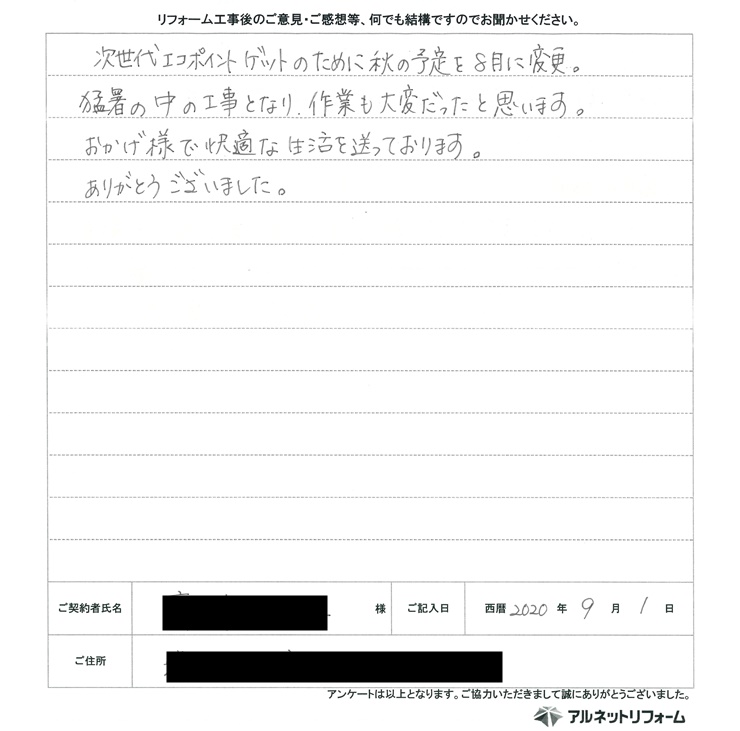 リフォーム工事後のご意見・ご感想等、何でも結構ですのでお聞かせください。
次世代エコポイントゲットのために秋の予定を8月に変更。
猛暑の中の工事となり、作業も大変だったと思います。
おかげ様で快適な生活を送っております。
ありがとうございました。
ご契約者氏名 様 ご記入日 西暦 2020 年 9 月 1 日
ご住所
アンケートは以上となります。ご協力いただきまして誠にありがとうございました。
アルネットリフォーム